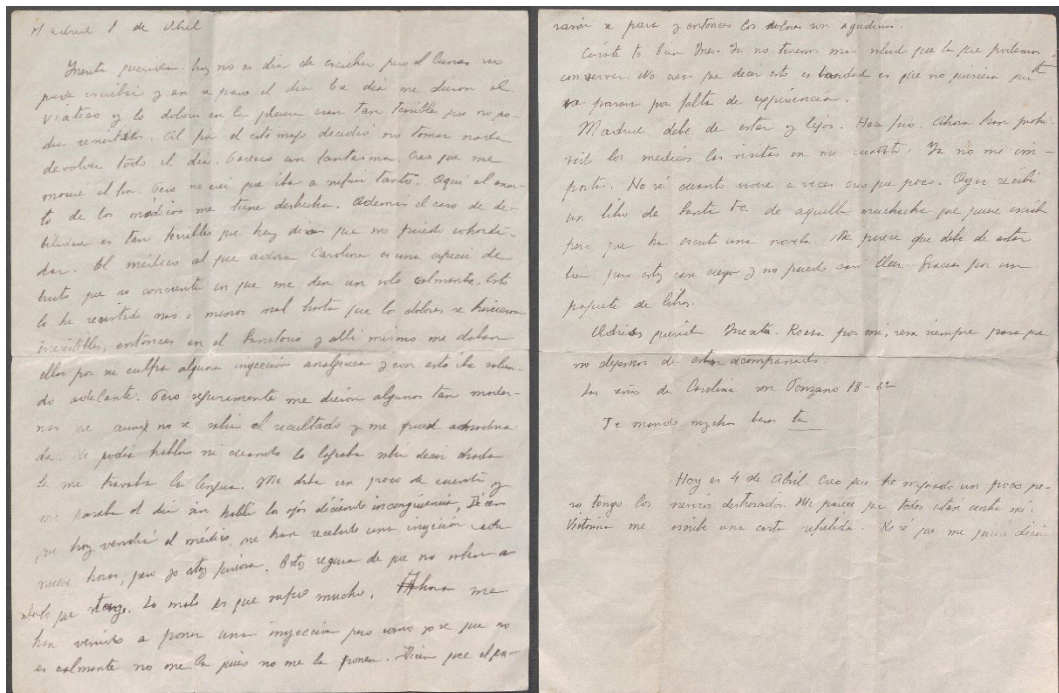 Madrid 1 de Abril
querida: hoy no es día de escribir pero el lunes no
pude escribir y así se pasó el día. Ese día me dieron el
viático y los dolores en la pleura eran tan terribles que no po-
día resistirlos. Al fin el estómago decidió no tomar nada
devolver todo el día. Parezco un fantasma. Creo que me
moriré al fin. Pero no creí que iba a sufrir tanto. Aquí el
to de los médicos me tiene deshecha. Además el caso de de-
bilidad es tan terrible que hay días que no puedo
El médico al que adora Carolina es una especie de
bruto que no consiente en que me den un solo calmante. Esto
lo he resistido mas o menos mal hasta que los dolores se hicieron
irresistibles, entonces en el Sanatorio y allí mismo me daban
ellos por su culpa alguna inyección analgésica y con esto iba salien-
do adelante. Pero seguramente me dieron algunos tan moder-
nos que aunque no se sabía el resultado y me quedé
da. No podía hablar ni cuando lo lograba sabía decir
se me trababa la lengua. Me daba un poco de cuenta y
me pasaba el día sin hablar los ojos diciendo incongruencias. Dicen
que hoy vendrá el médico, me han recetado una inyección cada
nueve horas, pero yo estoy furiosa. Estoy segura de que no saben
que tengo. Lo malo es que sufro mucho. Ahora me
han venido a poner una inyección pero como yo sé que no
es calmante no me la pues no me la ponen. Dicen que el co-
razón se para y entonces los dolores son agudísimos.
Cuídate tú bien Ya no tenemos más salud que la que podemos
conservar. No creas que decir esto es vanidad es que no quisiera que tú
pasaras por falta de experiencia.
Madrid debe de estar y lejos. Hace frío. Ahora han prohi-
bido los médicos las visitas en mi cuarto. Ya no me im-
porta. No sé cuanto viviré a veces creo que poco. Ayer recibí
un libro de Santa Fe de aquella muchacha que quiere escribir
pero que ha escrito una novela. Me parece que debe de estar
bien pero estoy casi ciega y no puedo casi leer. Gracias por un
paquete de libros.
Adiós querida Reza por mí, reza siempre para que
no dejemos de estar acompañados.
Las señas de Carolina son Ponzano 18-6º
Te mando muchos besos tu
Hoy es 4 de Abril. Creo que he mejorado un poco pe-
ro tengo los nervios destrozados. Me parece que todos están contra mí.
me escribe una carta repetida. No sé que me quiere decir